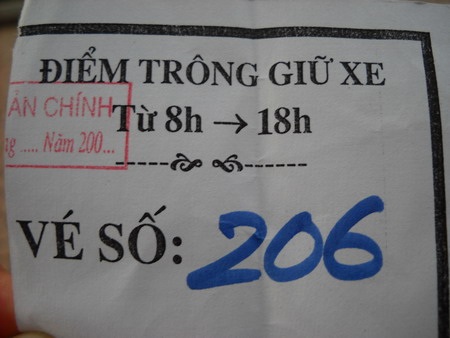 ĐIỂM TRÔNG GIỮ XE
ẢN CHÍNH
Từ 8h → 18h
ng ..... Năm 200...
VÉ SỐ: 206